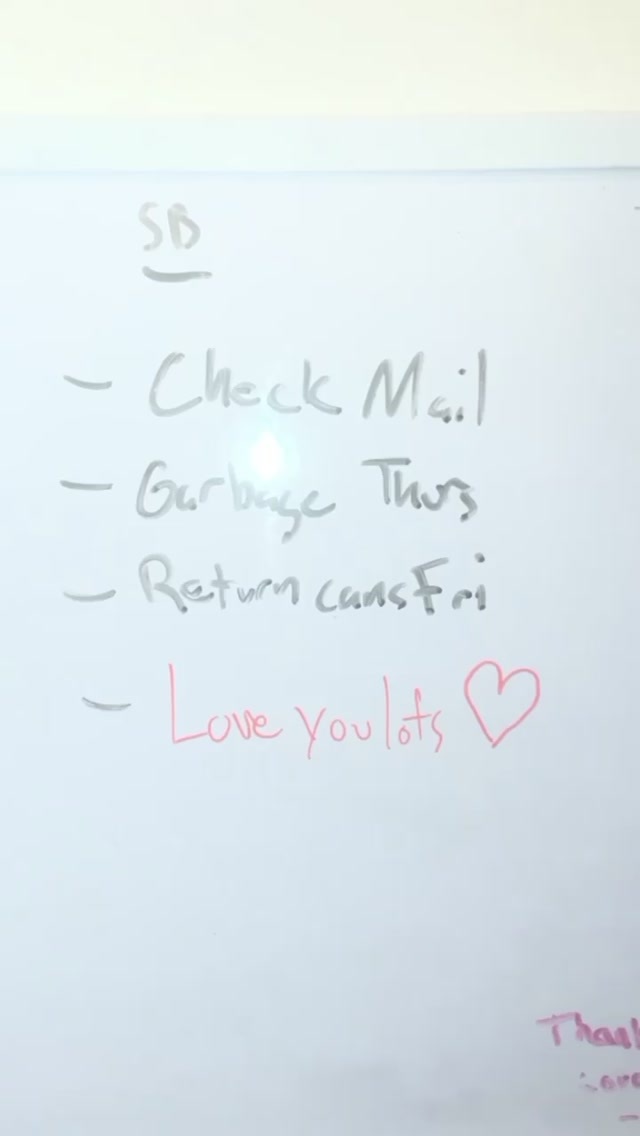 SB
- Check Mail
- Garbage Thurs
- Return cans Fri
- Love you lots ♡
Thank